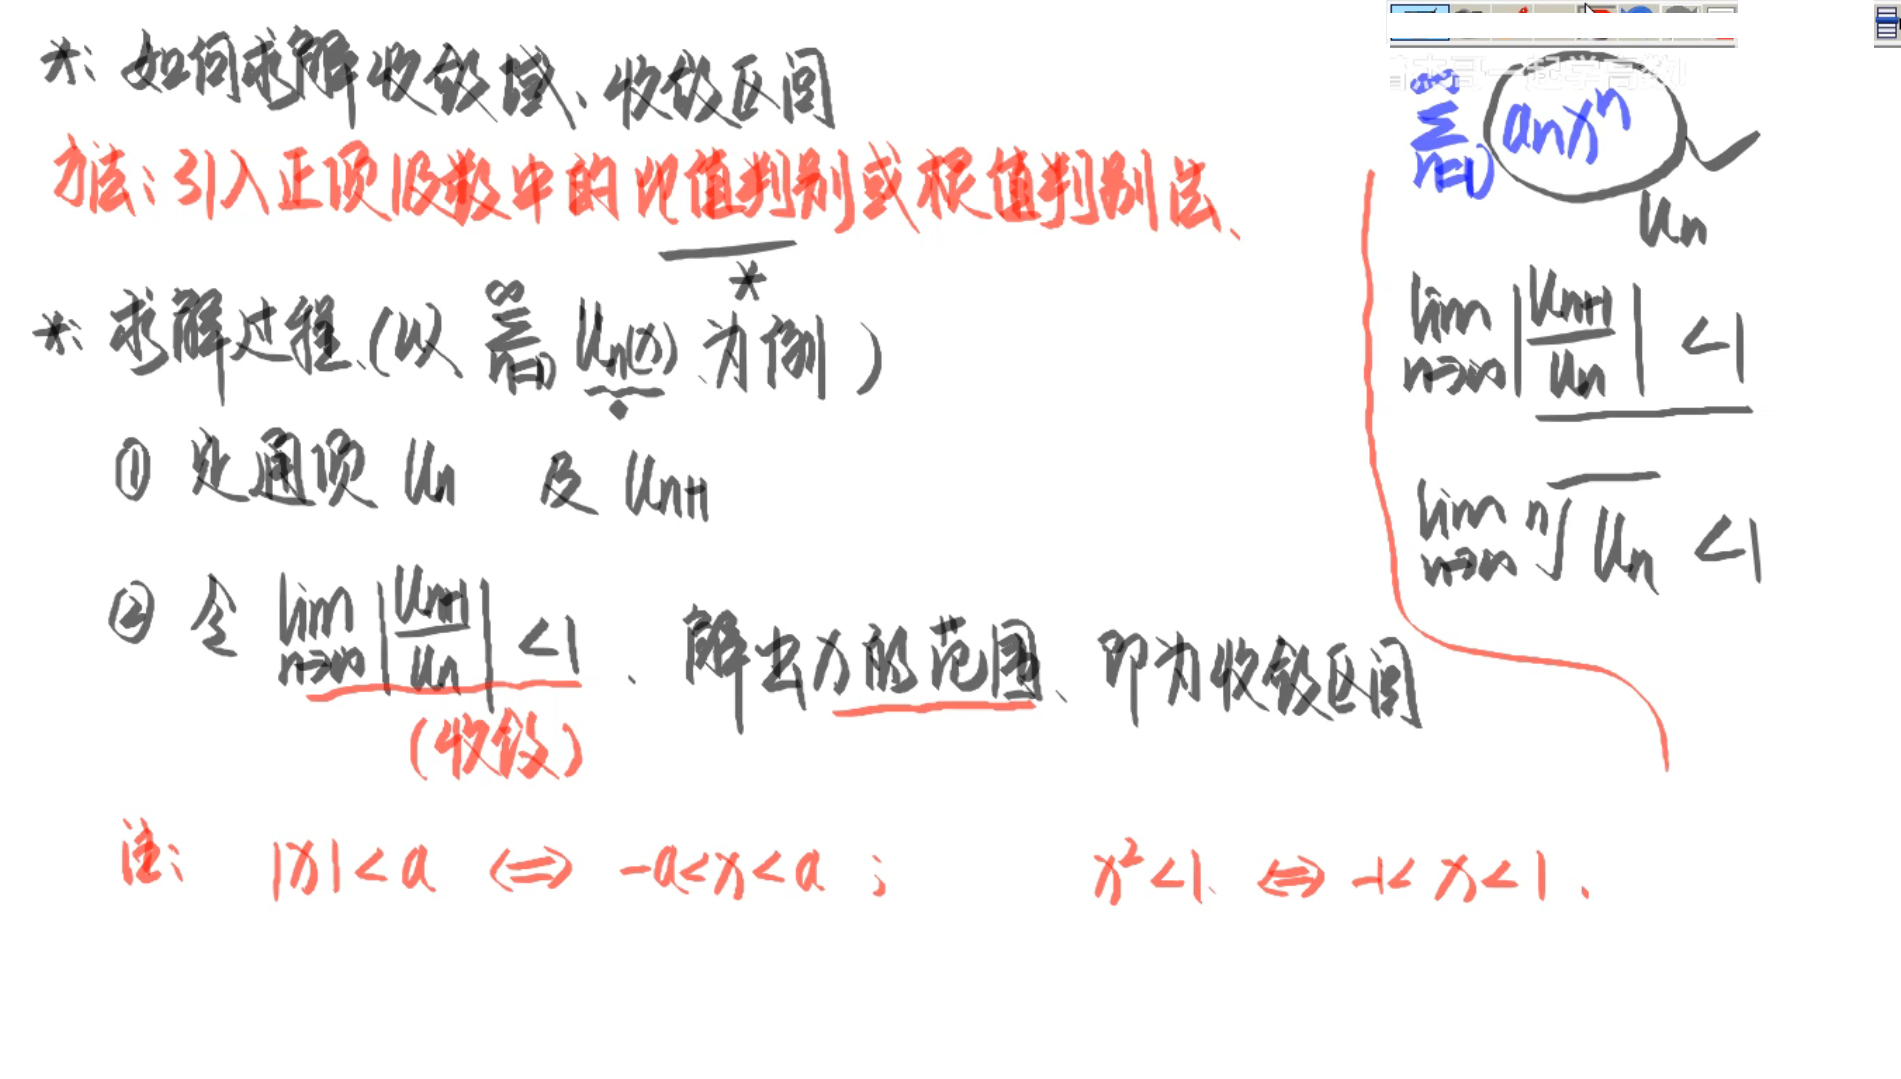 *: 如何求解收敛域、收敛区间
方法: 引入正项级数中的比值判别或根值判别法、
*: 求解过程、(以 ∞∑n=0 Un(x) 为例)
① 定通项 Un 及 Un+1
② 令 lim n→∞ |Un+1/Un| <1 、 解出x的范围、即为收敛区间
(收敛)
注: |x|<a ⇔ -a<x<a ; x²<1、 ⇔ -1<x<1 .
一起学高数
∞∑n=0 anxⁿ
Un
lim n→∞ |Un+1/Un| <1
lim n→∞ ⁿ√Un <1